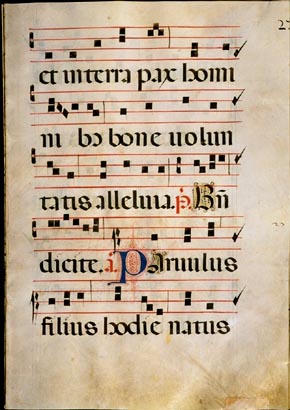 27
et in terra pax homi
ni bo bone uolun
tatis alleluia. p̄. Bn̄
dicite. ā Paruulus
filius hodie natus